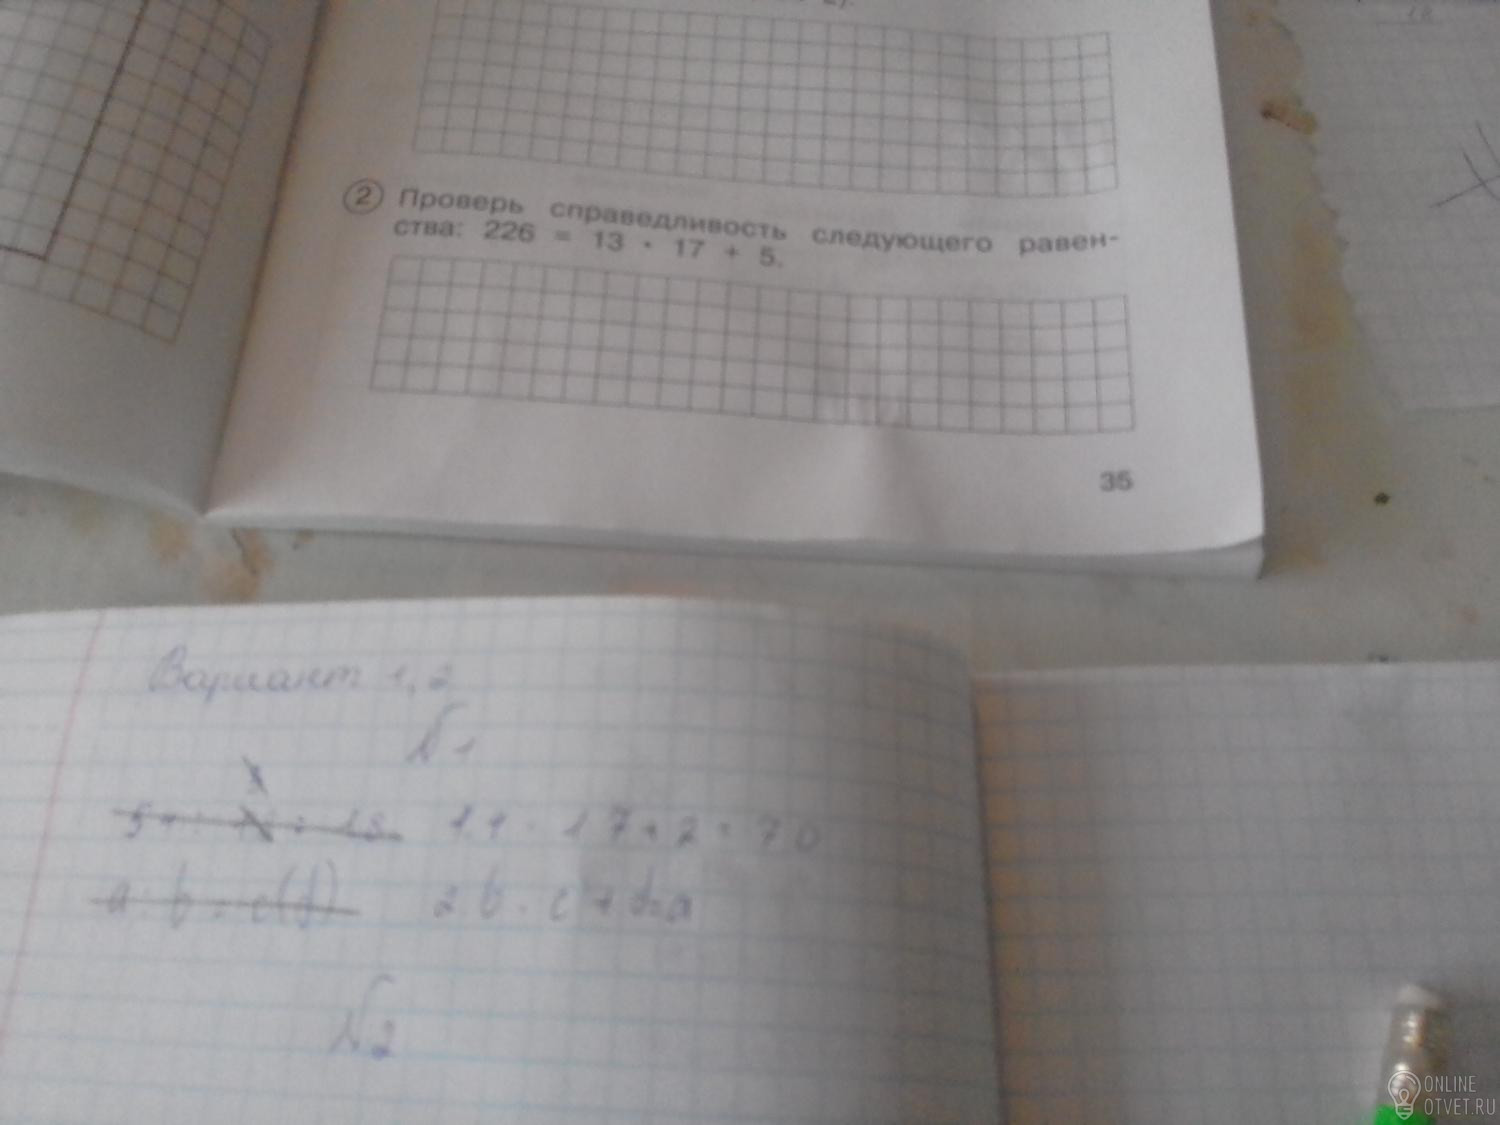 2).
② Проверь справедливость следующего равен-
ства: 226 = 13 · 17 + 5.
35
Вариант 1, 2
№1
11 · 17 + 2 = 70
2 b · c + d = a
a : b = c (d)
№2
ONLINE
OTVET.RU